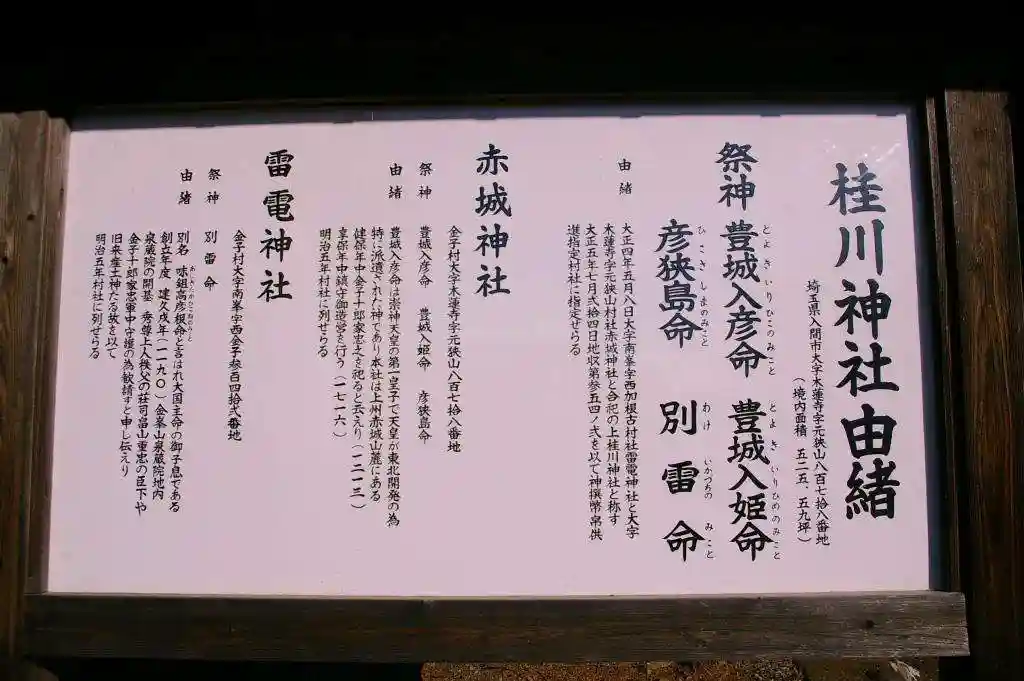 桂川神社由緒
埼玉県入間市大字木蓮寺字元狭山八百七拾八番地
(境内面積 五二五、五九坪)
祭神 豊城入彦命 豊城入姫命
とよきいりひこのみこと とよきいりひめのみこと
彦狭島命 別雷命
ひこさしまのみこと わけいかづちのみこと
由緒
大正四年五月八日大字南峯字西加根古村社雷電神社と大字
木蓮寺字元狭山村社赤城神社と合祀の上桂川神社と称す
大正五年七月弐拾四日地収第参五四ノ弐を以て神撰幣帛供
進指定村社に指定せらる
赤城神社
金子村大字木蓮寺字元狭山八百七拾八番地
祭神 豊城入彦命 豊城入姫命 彦狭島命
由緒 豊城入彦命は崇神天皇の第一皇子で天皇が東北開発の為
特に派遣された神であり本社は上州赤城山麓にある
健保年中金子十郎家忠之を祀ると云えり(一二一三)
享保年中鎮守御造営を行う(一七一六)
明治五年村社に列せらる
雷電神社
金子村大字南峯字西金子参百四拾弐番地
祭神 別雷命
由緒 別名 味鉏高彦根命と言はれ大国主命の御子息である
あじすきたかひこねのみこと
創立年度 建久戌年(一一九〇)金峯山泉蔵院地内
泉蔵院の開基 秀尊上人秩父の荘司畠山重忠の臣下や
金子十郎家忠軍中守護の為勧請すと申し伝えり
旧来産土神たる故を以て
明治五年村社に別せらる